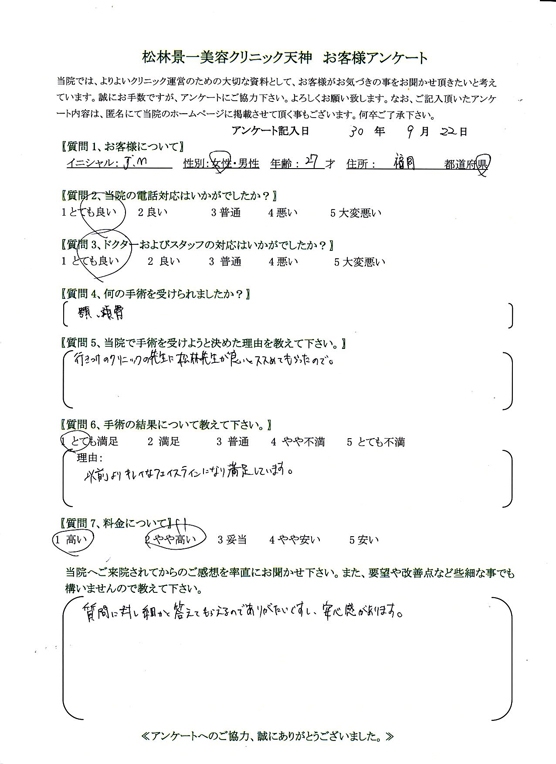 松林景一美容クリニック天神　お客様アンケート
当院では、よりよいクリニック運営のための大切な資料として、お客様がお気づきの事をお聞かせ頂きたいと考え
ています。誠にお手数ですが、アンケートにご協力下さい。よろしくお願い致します。なお、ご記入頂いたアンケ
ート内容は、匿名にて当院のホームページに掲載させて頂く事もございます。何卒ご了承下さい。
アンケート記入日　30 年 9 月 22 日
〖質問 1、お客様について〗
イニシャル: J.M　性別:女性・男性　年齢: 27 才　住所: 福岡　都道府県
〖質問 2、当院の電話対応はいかがでしたか？〗
1 とても良い　2 良い　3 普通　4 悪い　5 大変悪い
〖質問 3、ドクターおよびスタッフの対応はいかがでしたか？〗
1 とても良い　2 良い　3 普通　4 悪い　5 大変悪い
〖質問 4、何の手術を受けられましたか？〗
顎、頬骨
〖質問 5、当院で手術を受けようと決めた理由を教えて下さい。〗
行きつけのクリニックの先生に松林先生が良いとススめてもらったので。
〖質問 6、手術の結果について教えて下さい。〗
1 とても満足　2 満足　3 普通　4 やや不満　5 とても不満
理由:
以前よりキレイなフェイスラインになり満足しています。
〖質問 7、料金について〗
1 高い　2 やや高い　3 妥当　4 やや安い　5 安い
当院へご来院されてからのご感想を率直にお聞かせ下さい。また、要望や改善点など些細な事でも
構いませんので教えて下さい。
質問に対し細かく答えてもらえるのでありがたいですし、安心感があります。
≪アンケートへのご協力、誠にありがとうございました。≫